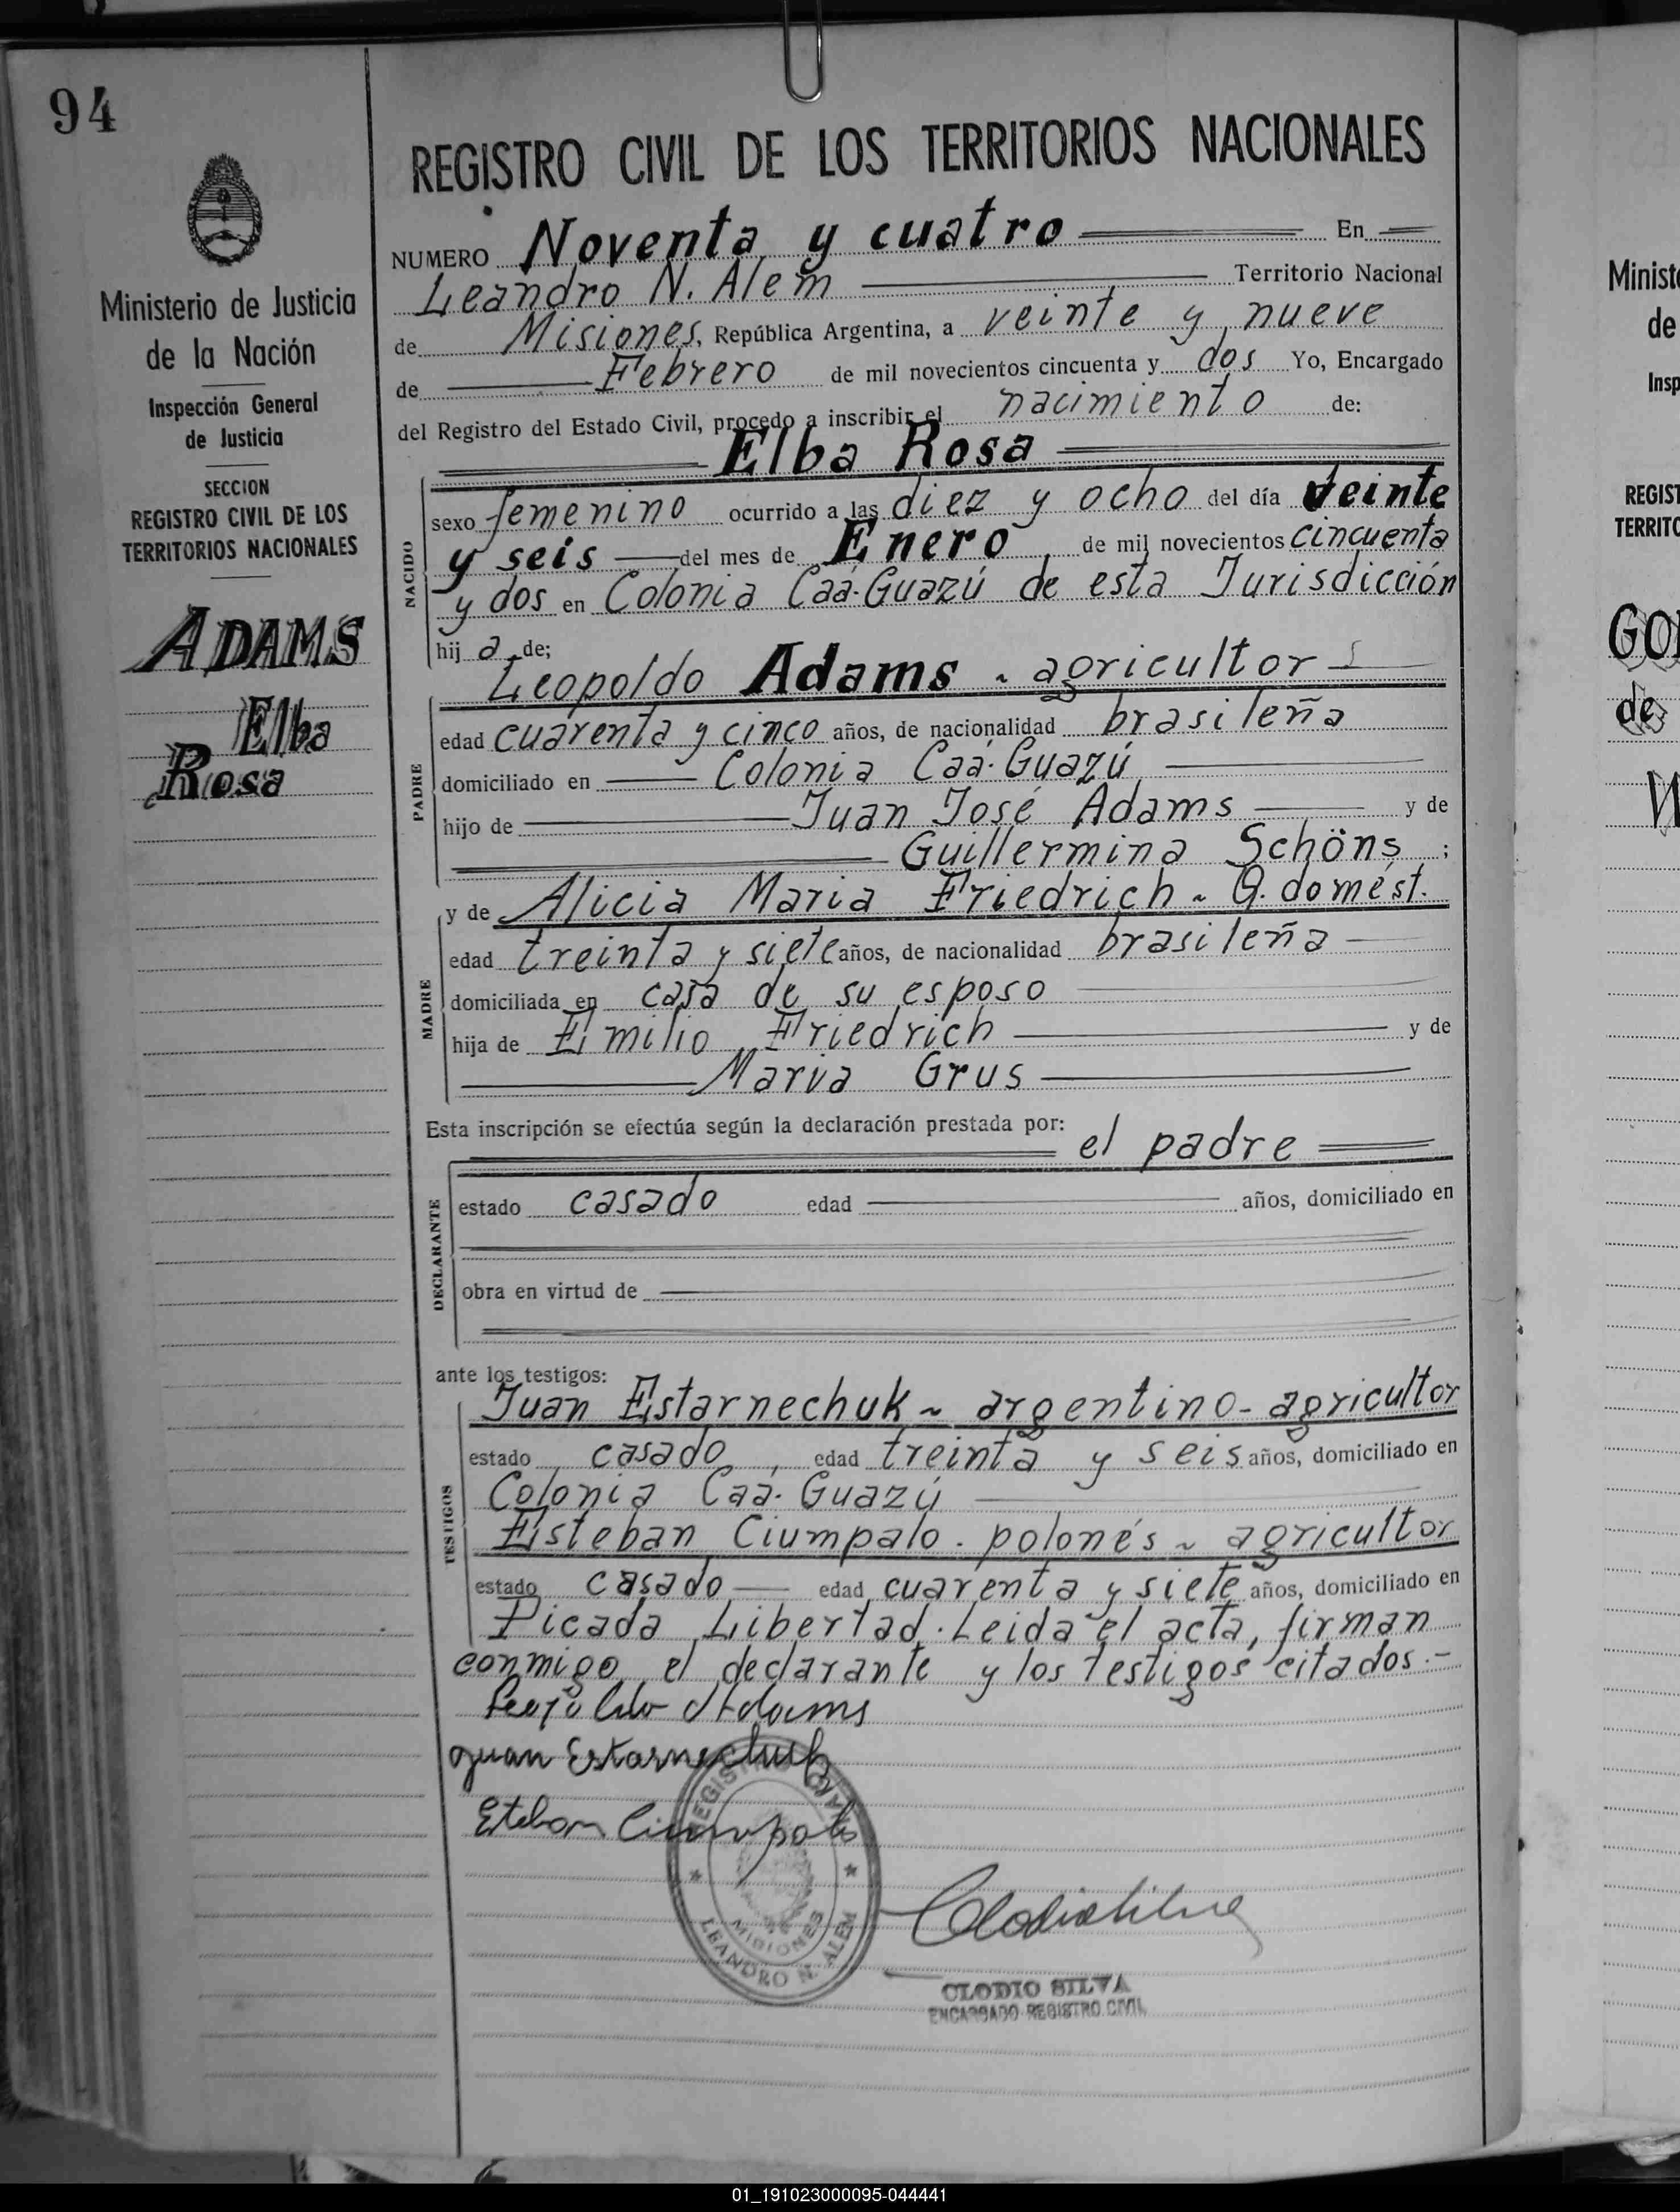 94
Ministerio de Justicia
de la Nación
Inspección General
de Justicia
SECCION
REGISTRO CIVIL DE LOS
TERRITORIOS NACIONALES
ADAMS
Elba
Rosa
REGISTRO CIVIL DE LOS TERRITORIOS NACIONALES
NUMERO Noventa y cuatro En
Leandro N. Alem Territorio Nacional
de Misiones, República Argentina, a veinte y nueve
de Febrero de mil novecientos cincuenta y dos Yo, Encargado
del Registro del Estado Civil, procedo a inscribir el nacimiento de:
Elba Rosa
NACIDO
sexo femenino ocurrido a las diez y ocho del día veinte
y seis del mes de Enero, de mil novecientos cincuenta
y dos en Colonia Caá-Guazú de esta Jurisdicción
hij a de;
Leopoldo Adams - agricultor
PADRE
edad cuarenta y cinco años, de nacionalidad brasileña
domiciliado en Colonia Caá-Guazú
hijo de Juan José Adams y de
Guillermina Schöns ;
y de Alicia Maria Friedrich - Q. domést.
MADRE
edad treinta y siete años, de nacionalidad brasileña
domiciliada en casa de su esposo
hija de Emilio Friedrich y de
Maria Grus
Esta inscripción se efectúa según la declaración prestada por:
el padre
DECLARANTE
estado casado edad años, domiciliado en
obra en virtud de
ante los testigos:
Juan Estarnechuk - argentino - agricultor
TESTIGOS
estado casado, edad treinta y seis años, domiciliado en
Colonia Caá-Guazú
Esteban Ciumpalo - polonés - agricultor
estado casado edad cuarenta y siete años, domiciliado en
Picada Libertad. Leida el acta, firman
conmigo el declarante y los testigos citados.-
Leopoldo Adams
Juan Estarnechuk
Esteban Ciumpalo
REGISTRO CIVIL
MISIONES
LEANDRO N. ALEM
Clodio Silva
CLODIO SILVA
ENCARGADO REGISTRO CIVIL
Minist
de
Insp
REGIST
TERRITO
GO
de
W
01_191023000095-044441